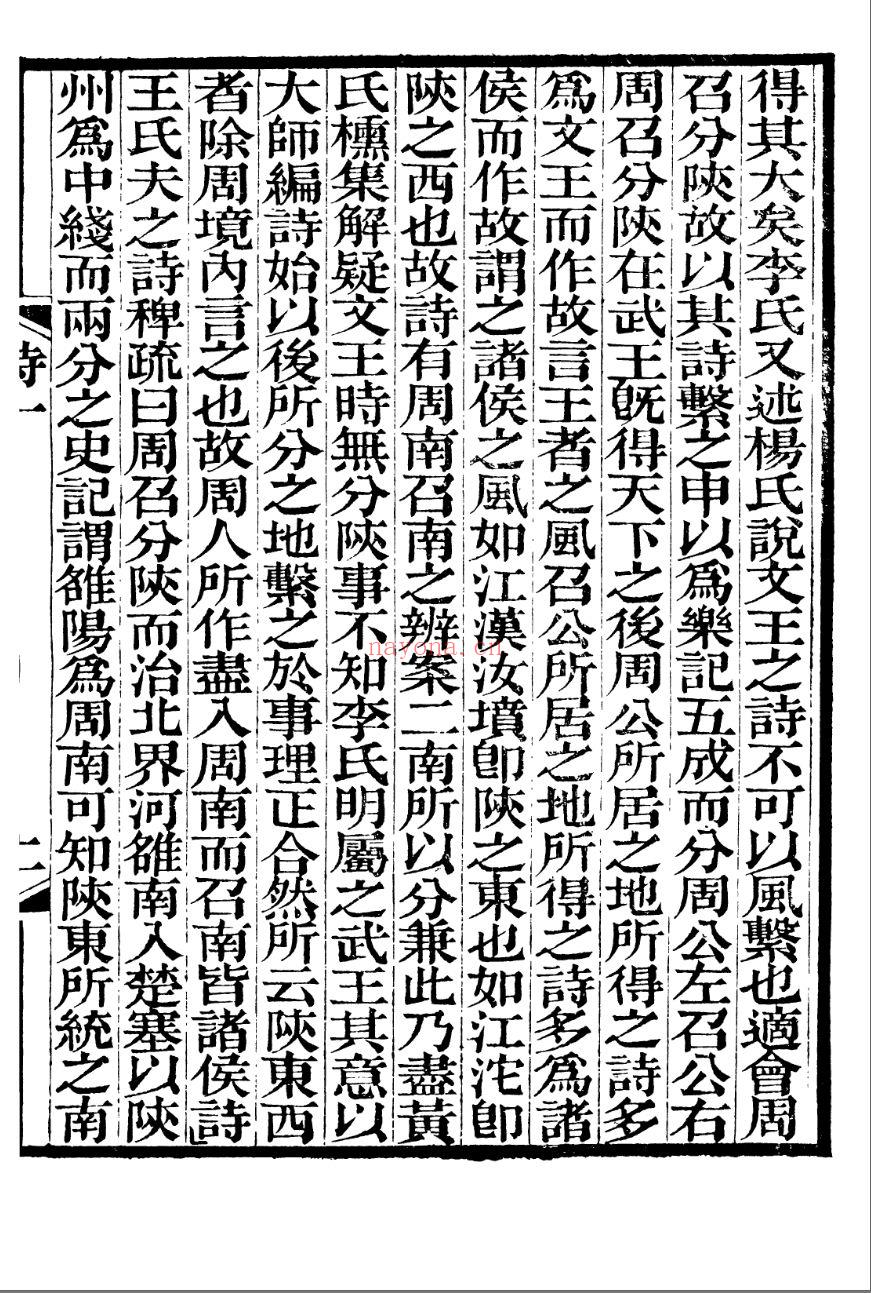 得其大矣李氏又述楊氏說文王之詩不可以風繫也適會周
召分陝故以其詩繫之申以爲樂記五成而分周公左召公右
周召分陝在武王旣得天下之後周公所居之地所得之詩多
爲文王而作故言王者之風召公所居之地所得之詩多爲諸
侯而作故謂之諸侯之風如江漢汝墳卽陝之東也如江沱卽
陝之西也故詩有周南召南之辨案二南所以分兼此乃盡黃
氏櫄集解疑文王時無分陝事不知李氏明屬之武王其意以
大師編詩始以後所分之地繫之於事理正合然所云陝東西
者除周境內言之也故周人所作盡入周南而召南皆諸侯詩
王氏夫之詩稗疏曰周召分陝而治北界河雒南入楚塞以陝
州爲中綫而兩分之史記謂雒陽爲周南可知陝東所統之南
詩一
二
nayona.cn